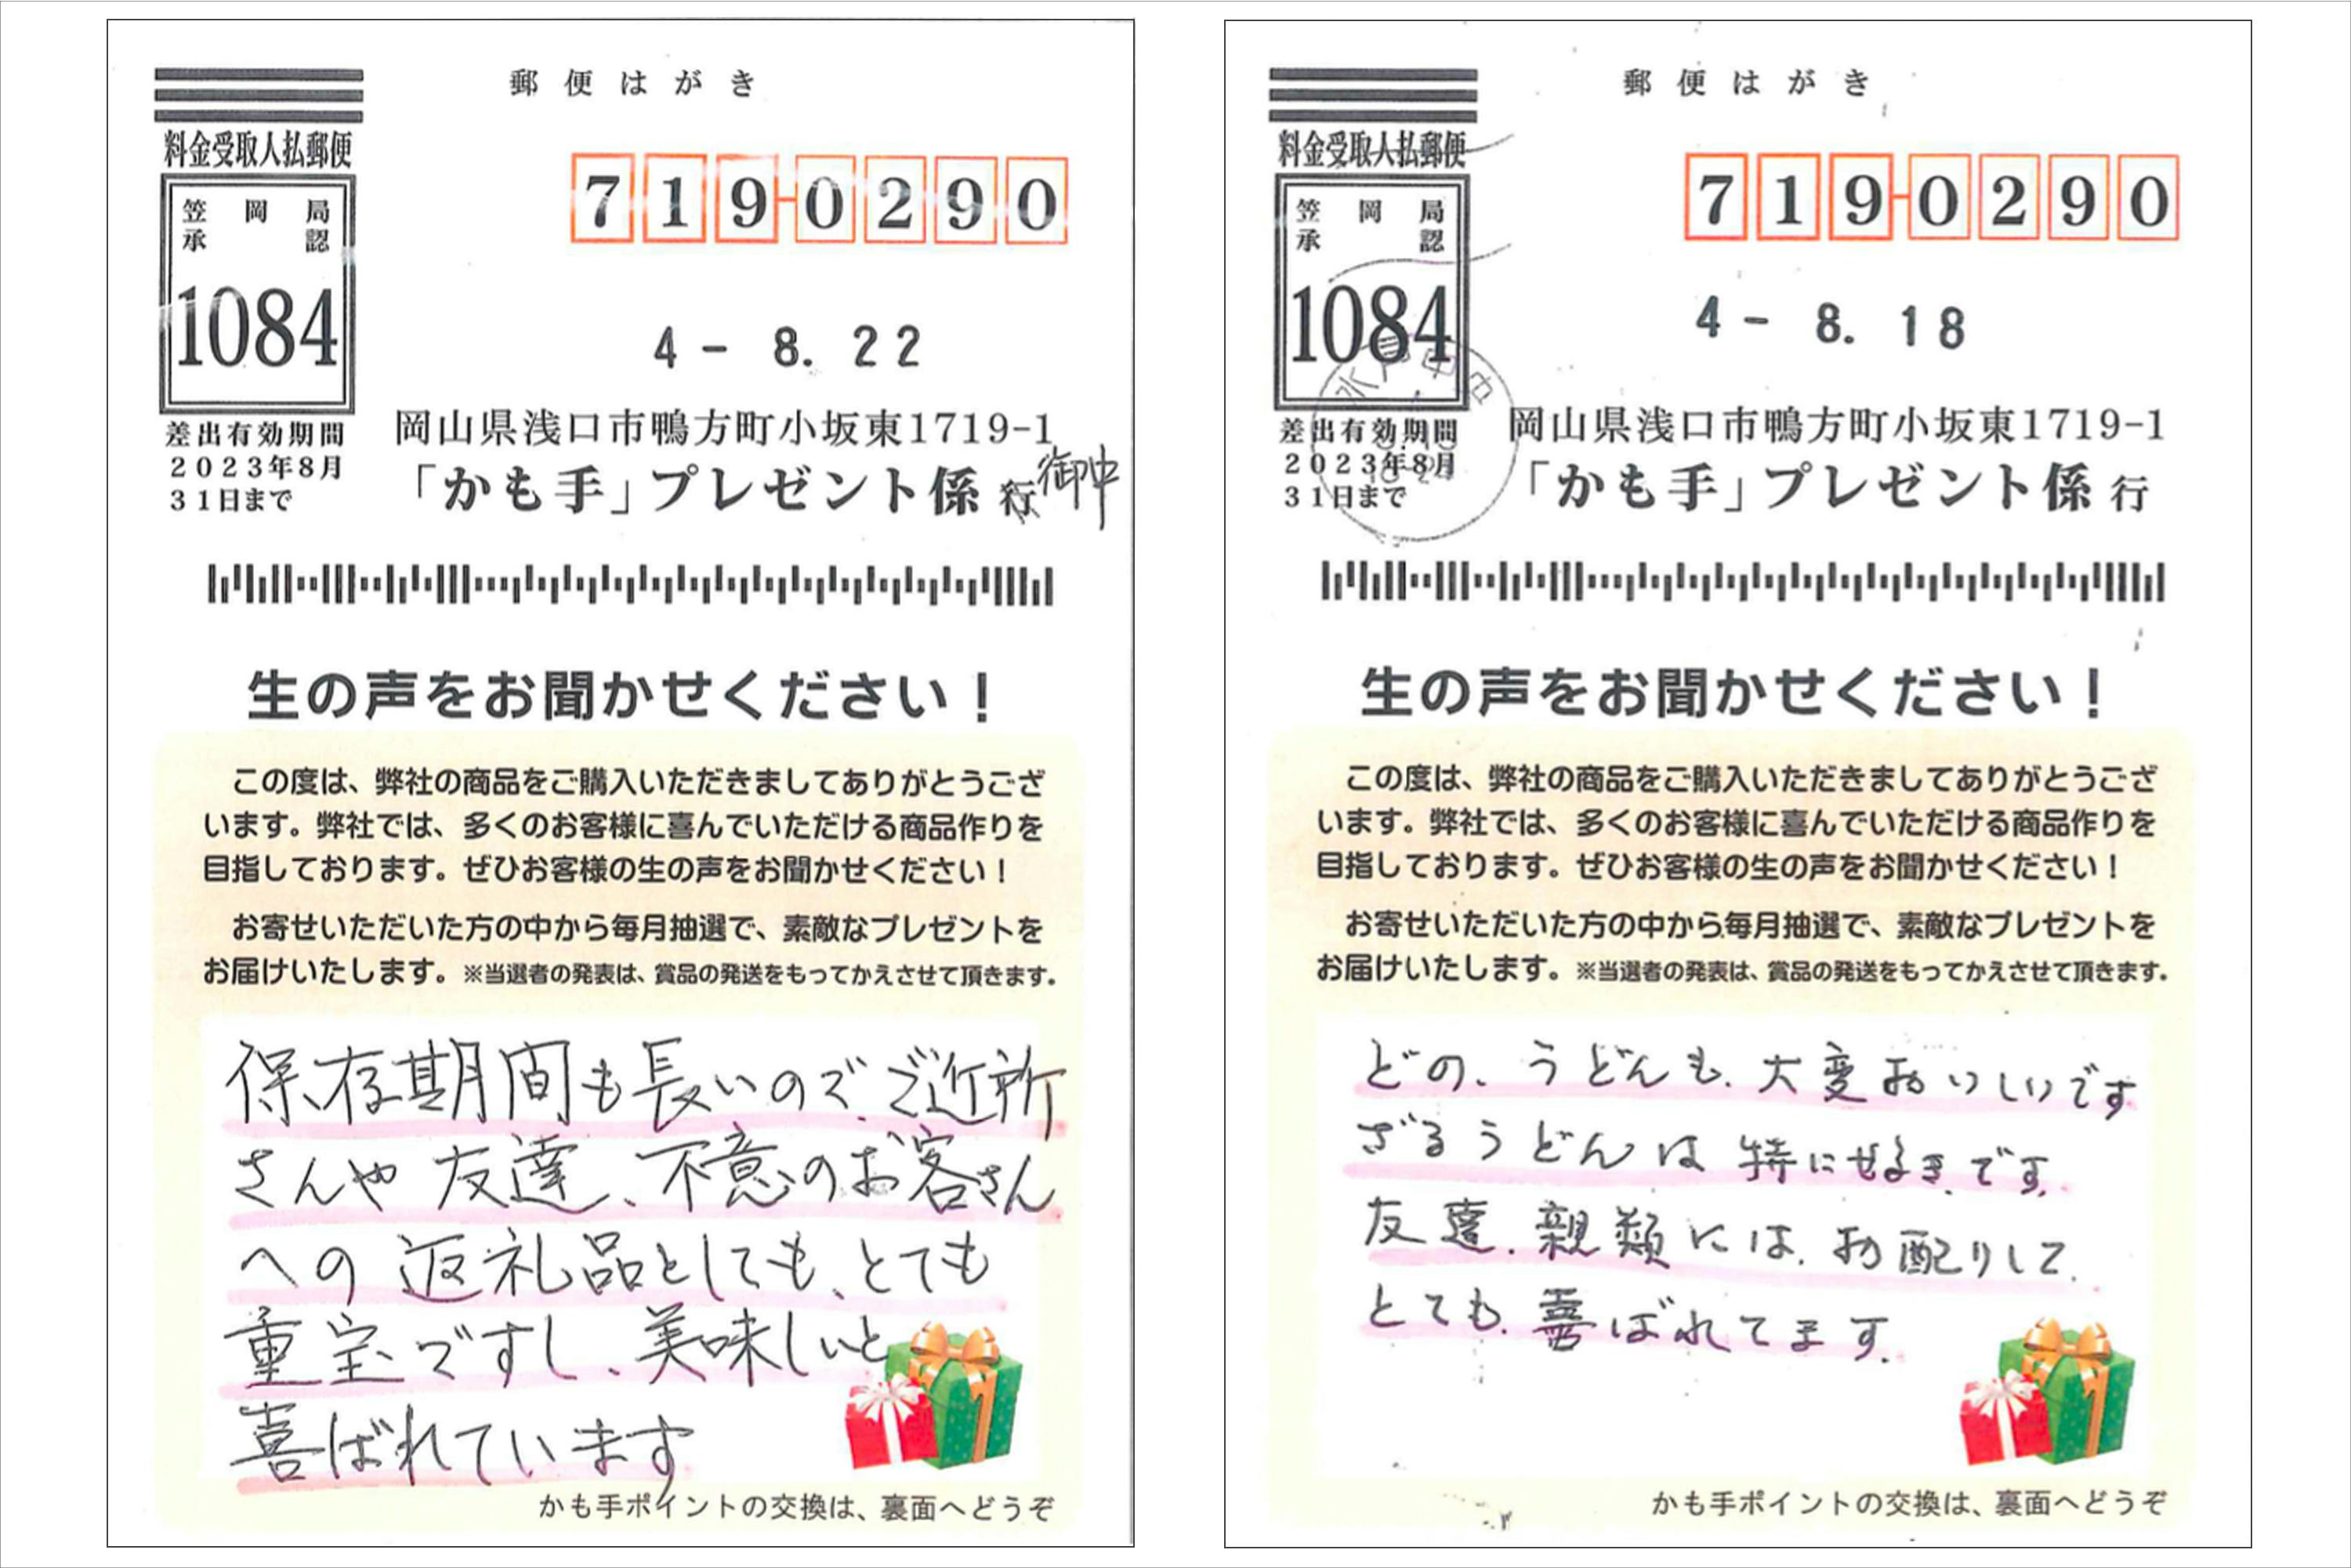 郵便はがき
料金受取人払郵便
笠岡局
承認
1084
差出有効期間
2023年8月
31日まで
719-0290
4 - 8. 22
岡山県浅口市鴨方町小坂東1719-1
「かも手」プレゼント係 行 御中
生の声をお聞かせください！
この度は、弊社の商品をご購入いただきましてありがとうござ
います。弊社では、多くのお客様に喜んでいただける商品作りを
目指しております。ぜひお客様の生の声をお聞かせください！
お寄せいただいた方の中から毎月抽選で、素敵なプレゼントを
お届けいたします。※当選者の発表は、賞品の発送をもってかえさせて頂きます。
保存期間も長いので、ご近所
さんや友達、不意のお客さん
への返礼品としても、とても
重宝ですし、美味しいと
喜ばれています
かも手ポイントの交換は、裏面へどうぞ
郵便はがき
料金受取人払郵便
笠岡局
承認
1084
差出有効期間
2023年8月
31日まで
719-0290
4 - 8. 18
岡山県浅口市鴨方町小坂東1719-1
「かも手」プレゼント係 行
生の声をお聞かせください！
この度は、弊社の商品をご購入いただきましてありがとうござ
います。弊社では、多くのお客様に喜んでいただける商品作りを
目指しております。ぜひお客様の生の声をお聞かせください！
お寄せいただいた方の中から毎月抽選で、素敵なプレゼントを
お届けいたします。※当選者の発表は、賞品の発送をもってかえさせて頂きます。
どの、うどんも、大変おいしいです
ざるうどんは特に好きです。
友達、親類には、お配りして、
とても、喜ばれてます。
かも手ポイントの交換は、裏面へどうぞ